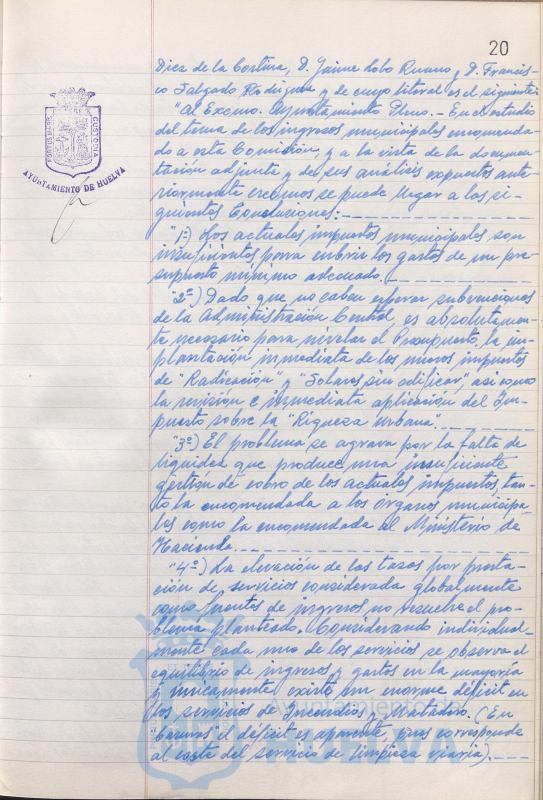 20
Diez de la Cortina, D. Jaime Lobo Ruano y D. Francis-
co Salgado Rodríguez y de cuyo literal es el siguiente:
"Al Excmo. Ayuntamiento Pleno.- En el estudio
del tema de los ingresos municipales encomenda-
do a esta Comisión, y a la vista de la documen-
tación adjunta y de sus análisis expuestos ante-
riormente creemos se puede llegar a las si-
guientes Conclusiones:-
"1ª) Los actuales impuestos municipales son
insuficientes para cubrir los gastos de un pre-
supuesto mínimo adecuado.
"2ª) Dado que no caben esperar subvenciones
de la Administración Central, es absolutamen-
te necesario para nivelar el Presupuesto, la im-
plantación inmediata de los nuevos impuestos
de "Radicación" y "Solares sin edificar", asi como
la revisión e inmediata aplicación del Im-
puesto sobre la "Riqueza Urbana".
"3ª) El problema se agrava por la falta de
liquidez que produce una insuficiente
gestión de cobro de los actuales impuestos, tan-
to la encomendada a los órganos municipa-
les como la encomendada al Ministerio de
Hacienda.
"4ª) La elevación de las tasas por presta-
ción de servicios considerada globalmente
como fuentes de ingresos no resuelve el pro-
blema planteado. Considerando individual-
mente cada uno de los servicios se observa el
equilibrio de ingresos y gastos en la mayoría
y únicamente existe un enorme déficit en
los servicios de Incendios y Matadero. (En
"basuras" el déficit es aparente, pues corresponde
al coste del servicio de limpieza viaria).
PORTUS MARIS
ET TERRE
CUSTODIA
AYUNTAMIENTO DE HUELVA
Ayuntamiento de
HUELVA